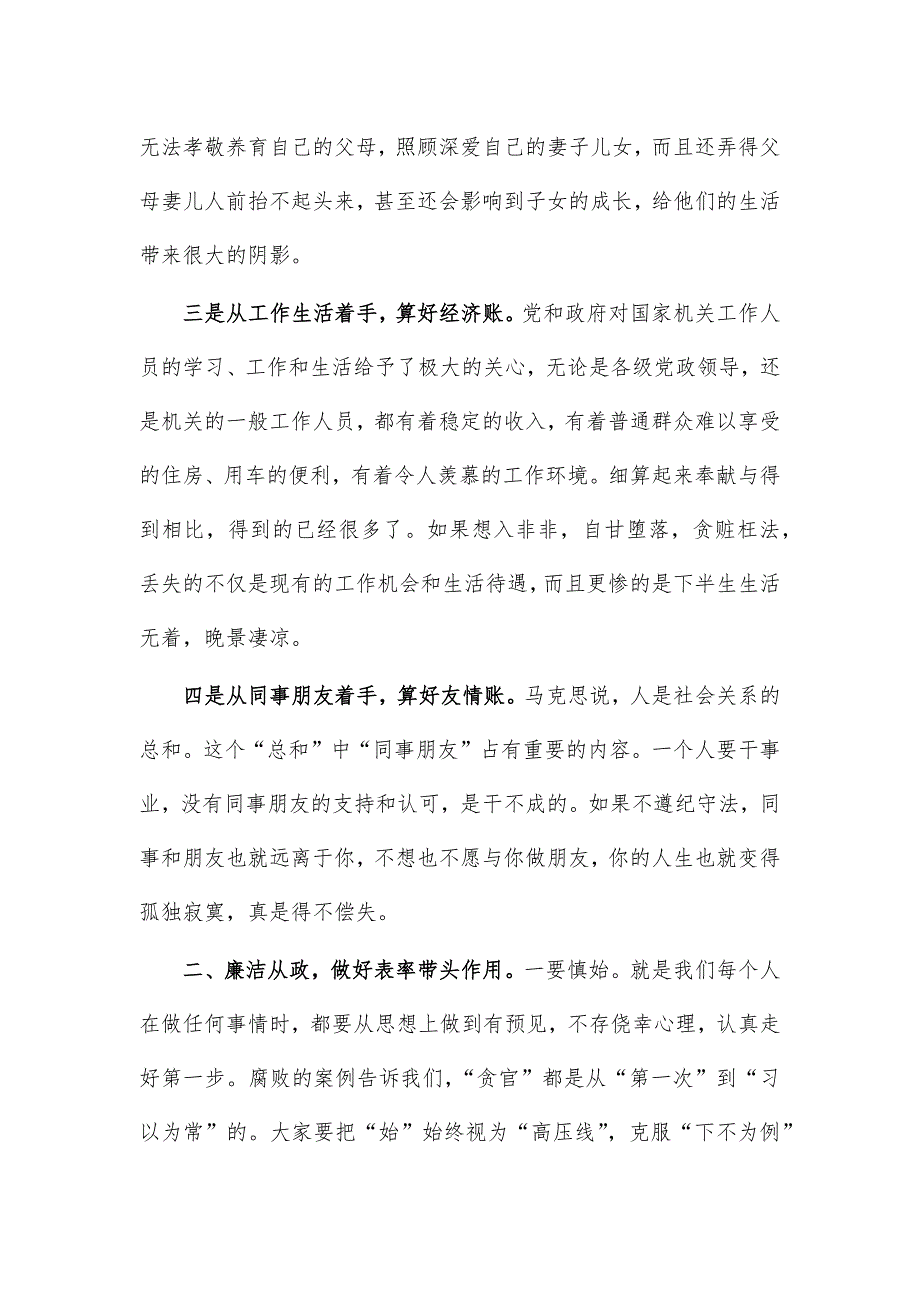 无法孝敬养育自己的父母，照顾深爱自己的妻子儿女，而且还弄得父
母妻儿人前抬不起头来，甚至还会影响到子女的成长，给他们的生活
带来很大的阴影。
三是从工作生活着手，算好经济账。党和政府对国家机关工作人
员的学习、工作和生活给予了极大的关心，无论是各级党政领导，还
是机关的一般工作人员，都有着稳定的收入，有着普通群众难以享受
的住房、用车的便利，有着令人羡慕的工作环境。细算起来奉献与得
到相比，得到的已经很多了。如果想入非非，自甘堕落，贪赃枉法，
丢失的不仅是现有的工作机会和生活待遇，而且更惨的是下半生生活
无着，晚景凄凉。
四是从同事朋友着手，算好友情账。马克思说，人是社会关系的
总和。这个“总和”中“同事朋友”占有重要的内容。一个人要干事
业，没有同事朋友的支持和认可，是干不成的。如果不遵纪守法，同
事和朋友也就远离于你，不想也不愿与你做朋友，你的人生也就变得
孤独寂寞，真是得不偿失。
二、廉洁从政，做好表率带头作用。一要慎始。就是我们每个人
在做任何事情时，都要从思想上做到有预见，不存侥幸心理，认真走
好第一步。腐败的案例告诉我们，“贪官”都是从“第一次”到“习
以为常”的。大家要把“始”始终视为“高压线”，克服“下不为例”